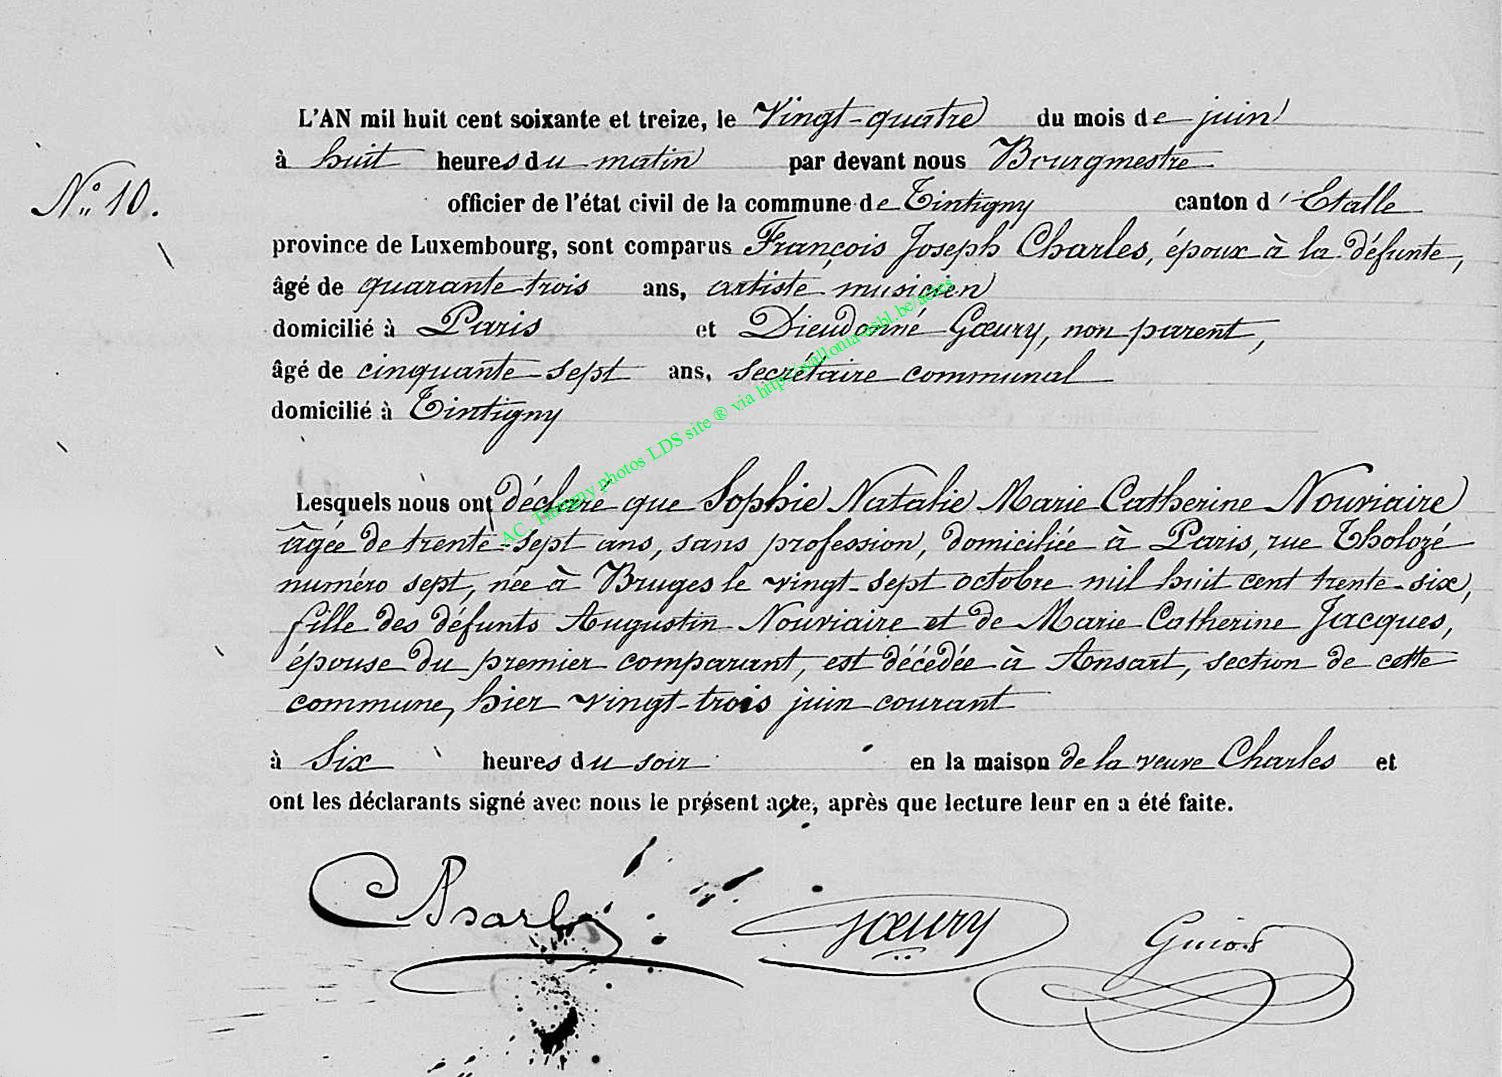 L'AN mil huit cent soixante et treize, le Vingt-quatre du mois de juin
à huit heures du matin par devant nous Bourgmestre
N° 10.
officier de l'état civil de la commune de Tintigny canton d'Etalle
province de Luxembourg, sont comparus François Joseph Charles, époux à la défunte,
âgé de quarante trois ans, artiste musicien
domicilié à Paris et Dieudonné Gœury, non parent,
âgé de cinquante-sept ans, secrétaire communal
domicilié à Tintigny
Lesquels nous ont déclaré que Sophie Natalie Marie Catherine Nouviaire
âgée de trente-sept ans, sans profession, domiciliée à Paris, rue Tholozé
numéro sept, née à Bruges le vingt-sept octobre mil huit cent trente-six,
fille des défunts Augustin Nouviaire et de Marie Catherine Jacques,
épouse du premier comparant, est décédée à Ansart, section de cette
commune, hier vingt-trois juin courant
à Six heures du soir en la maison de la veuve Charles et
ont les déclarants signé avec nous le présent acte, après que lecture leur en a été faite.
Charles Gœury Guiot
AC. Tintigny photos LDS site ® via http://wallonia-asbl.be/actes